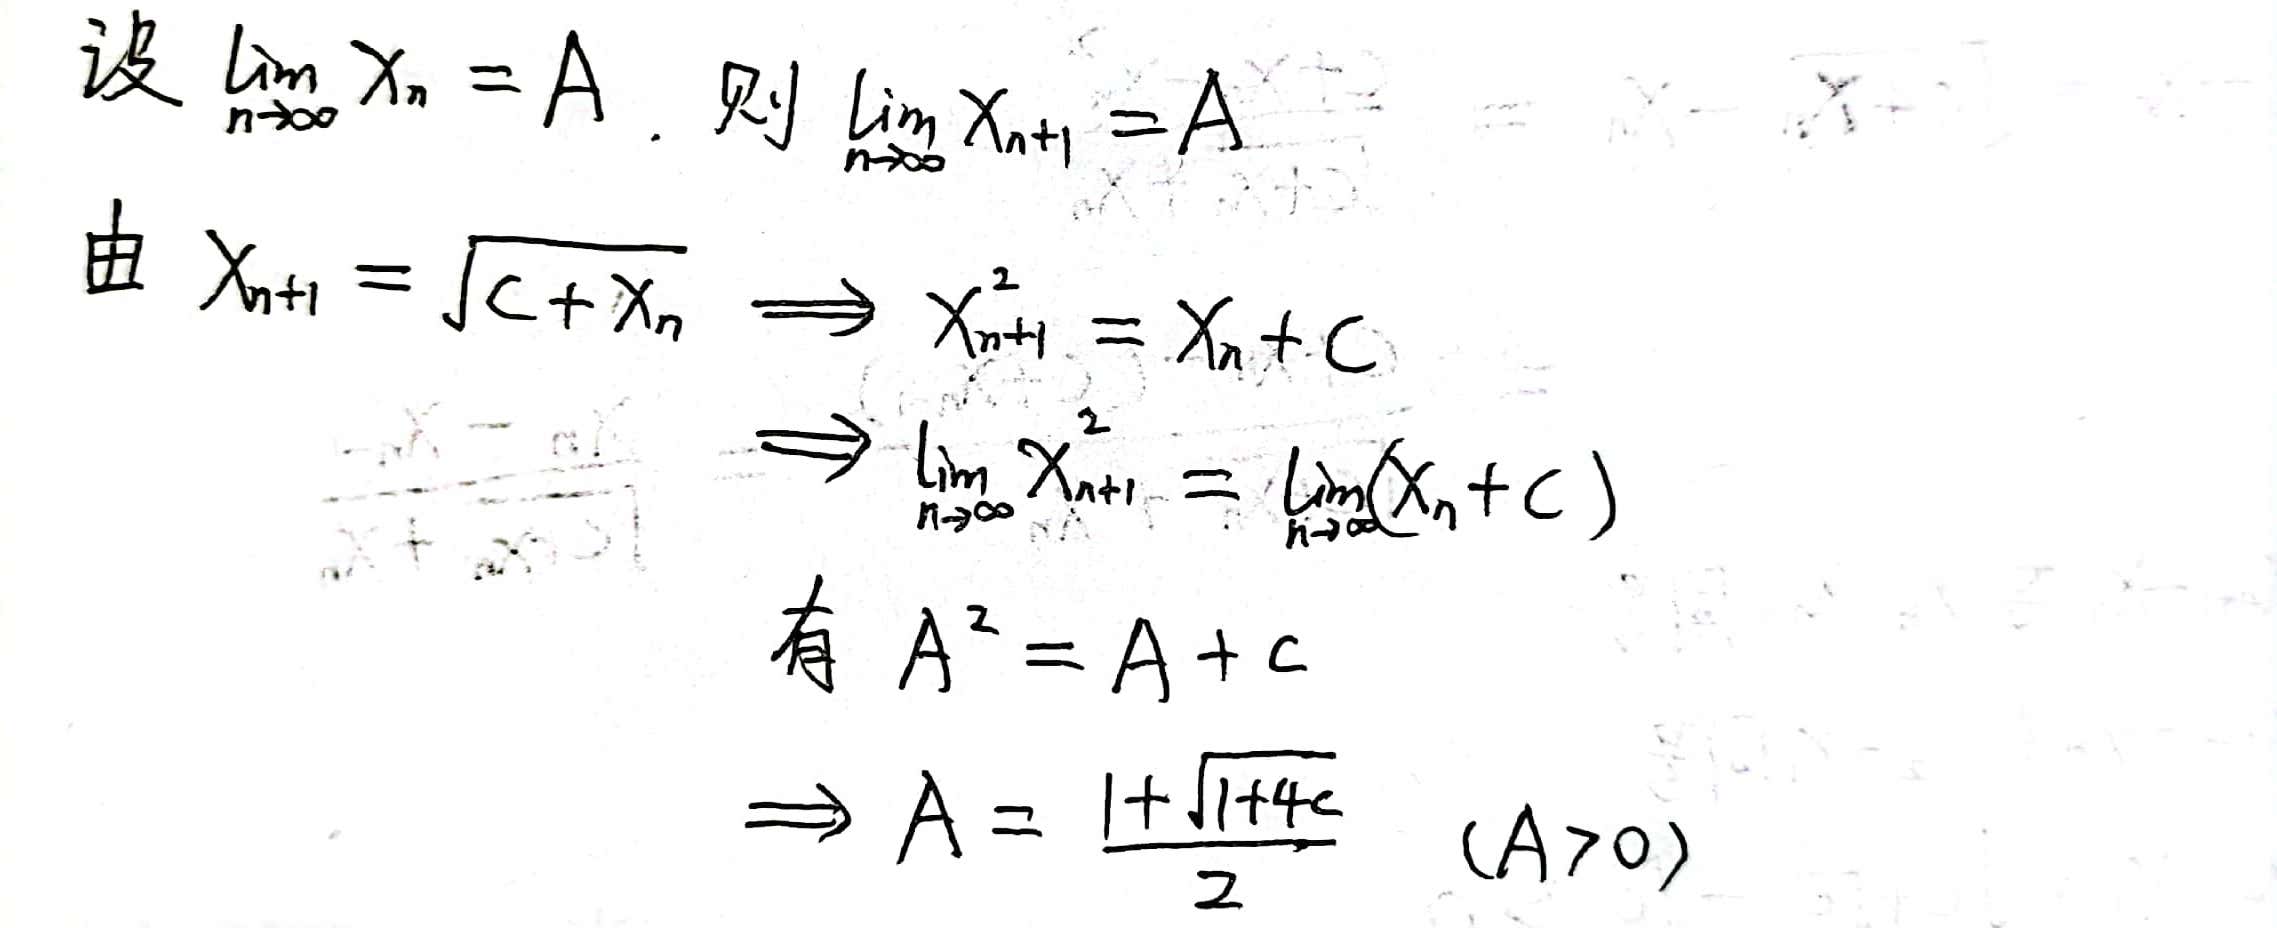 设 lim_{n→∞} Xₙ = A. 则 lim_{n→∞} Xₙ₊₁ = A
由 Xₙ₊₁ = √(C + Xₙ) ⟹ Xₙ₊₁² = Xₙ + C
⟹ lim_{n→∞} Xₙ₊₁² = lim_{n→∞} (Xₙ + C)
有 A² = A + C
⟹ A = (1 + √(1+4C)) / 2 (A>0)